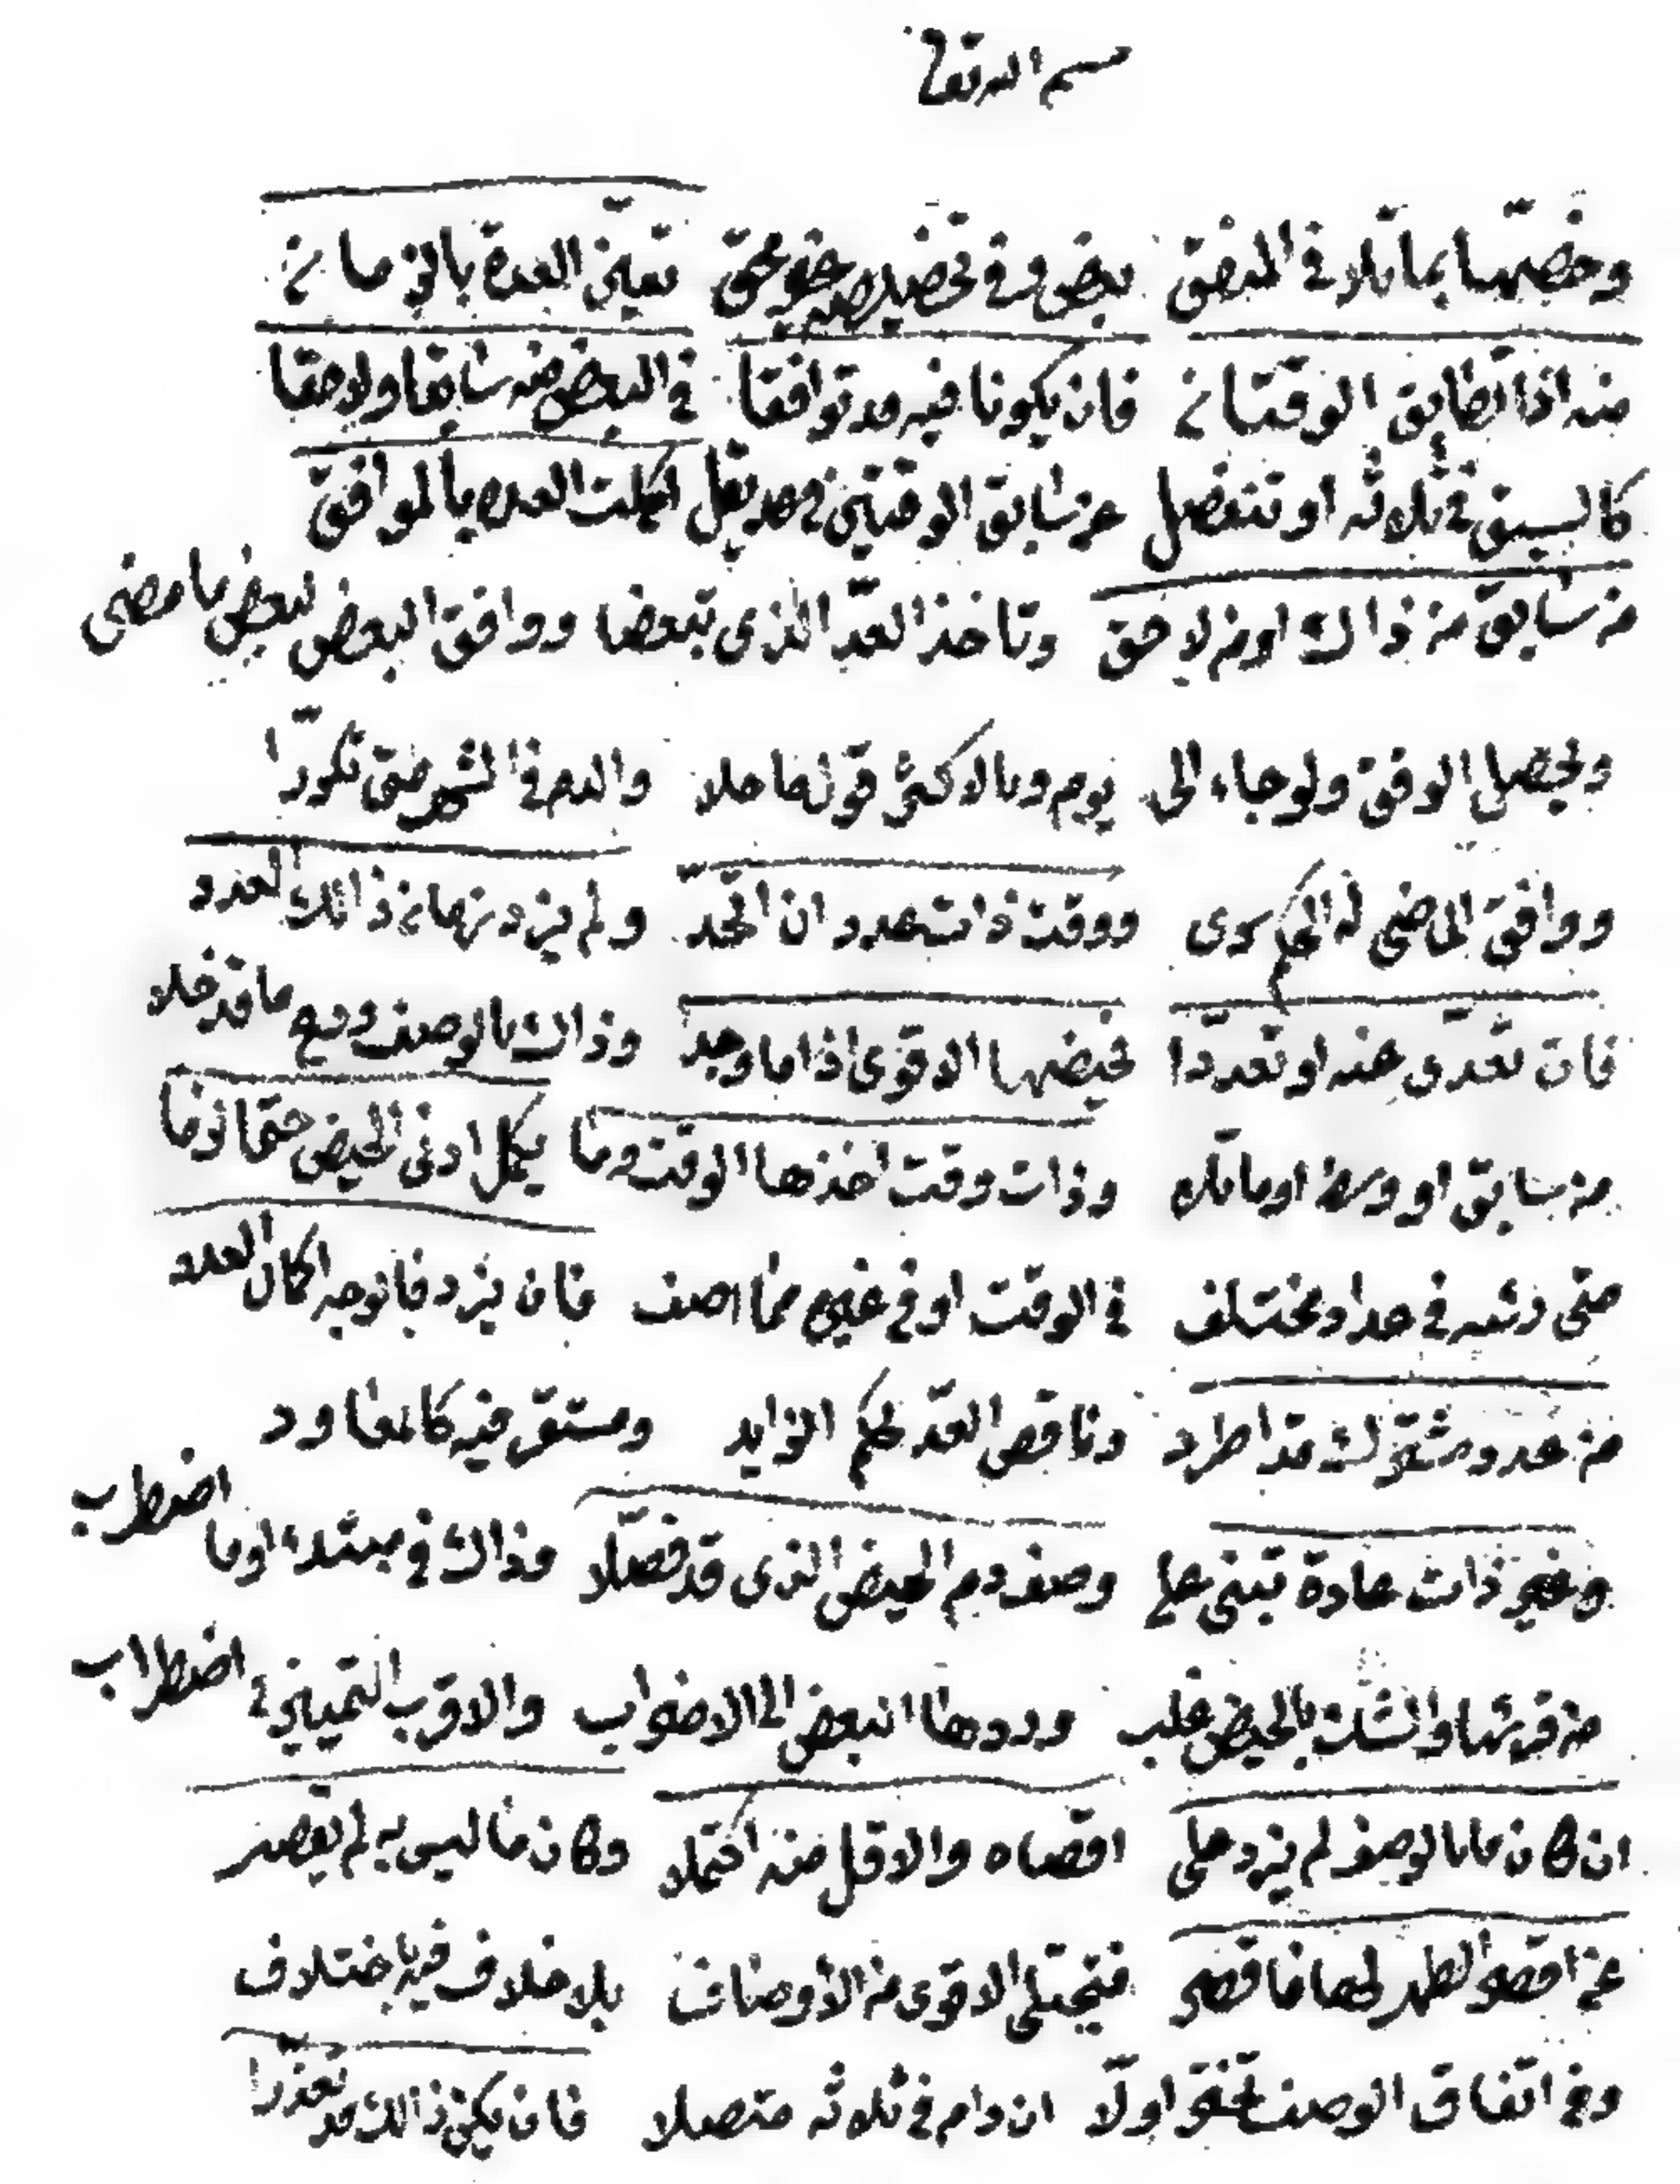 بسم الله تعالى
وخصصها بما تلا في المفق بعض وفي تعين العدة بالزمان
منه اذا تطابق الوقتان فان يكونا فيه قد توافقا في البعض منه سابقا ولاحقا
كالسبق في ثلاثة او تنفصل عن سابق الوقتين قد تقل اكملت العده بالموافق
من سابق من ذاك او من لاحق وتاخذ العد الذي تبعضا ووافق البعض لبعض ما مضى
ويحصل الوفق ولو جاء الى يوم وبالاكثر قول ما خلا والدم في الشهر متى تكررا
ووافق الماضي له الحكم سرى ووقت ذات عدد ان اتحد ولم يزد زمان ذلك العدد
فان تعدى عنه او تعددا تحيضها الاقوى اذا ما وجد وذاك بالوصف ومع ما قد خلا
من سابق او وسط او ما تلا وذات وقت اخذها الوقت وما يكمل ادنى الحيض حتما لزما
متى رئته في عداد مختلف في الوقت او في غيره مما اصف فان يزد فالوجه اكمال العدد
من عدد مشترك قد اطرد وناقص العد بحكم الزايد ومستقر فيه كالمعاود
وغير ذات عادة تبني على وصف دم الحيض الذي قد فصلا وذاك في مبتدء او ما اضطرب
من قرئها والشك بالحيض غلب وردها البعض الى الاضراب والاقرب التمييز في اضطراب
ان كان ما بالوصف لم يزد على اقصاه والاقل منه اكتملا وكان ما ليس به لم يقصر
عن اقصر الطهر لها فاقصر فتجتلي الاقوى من الأوصاف بلا خلاف فيه باختلاف
وفي اتفاق الوصف تختر اولا ان دام في ثلاثة متصلا فان يكن ذلك قد تعذرا